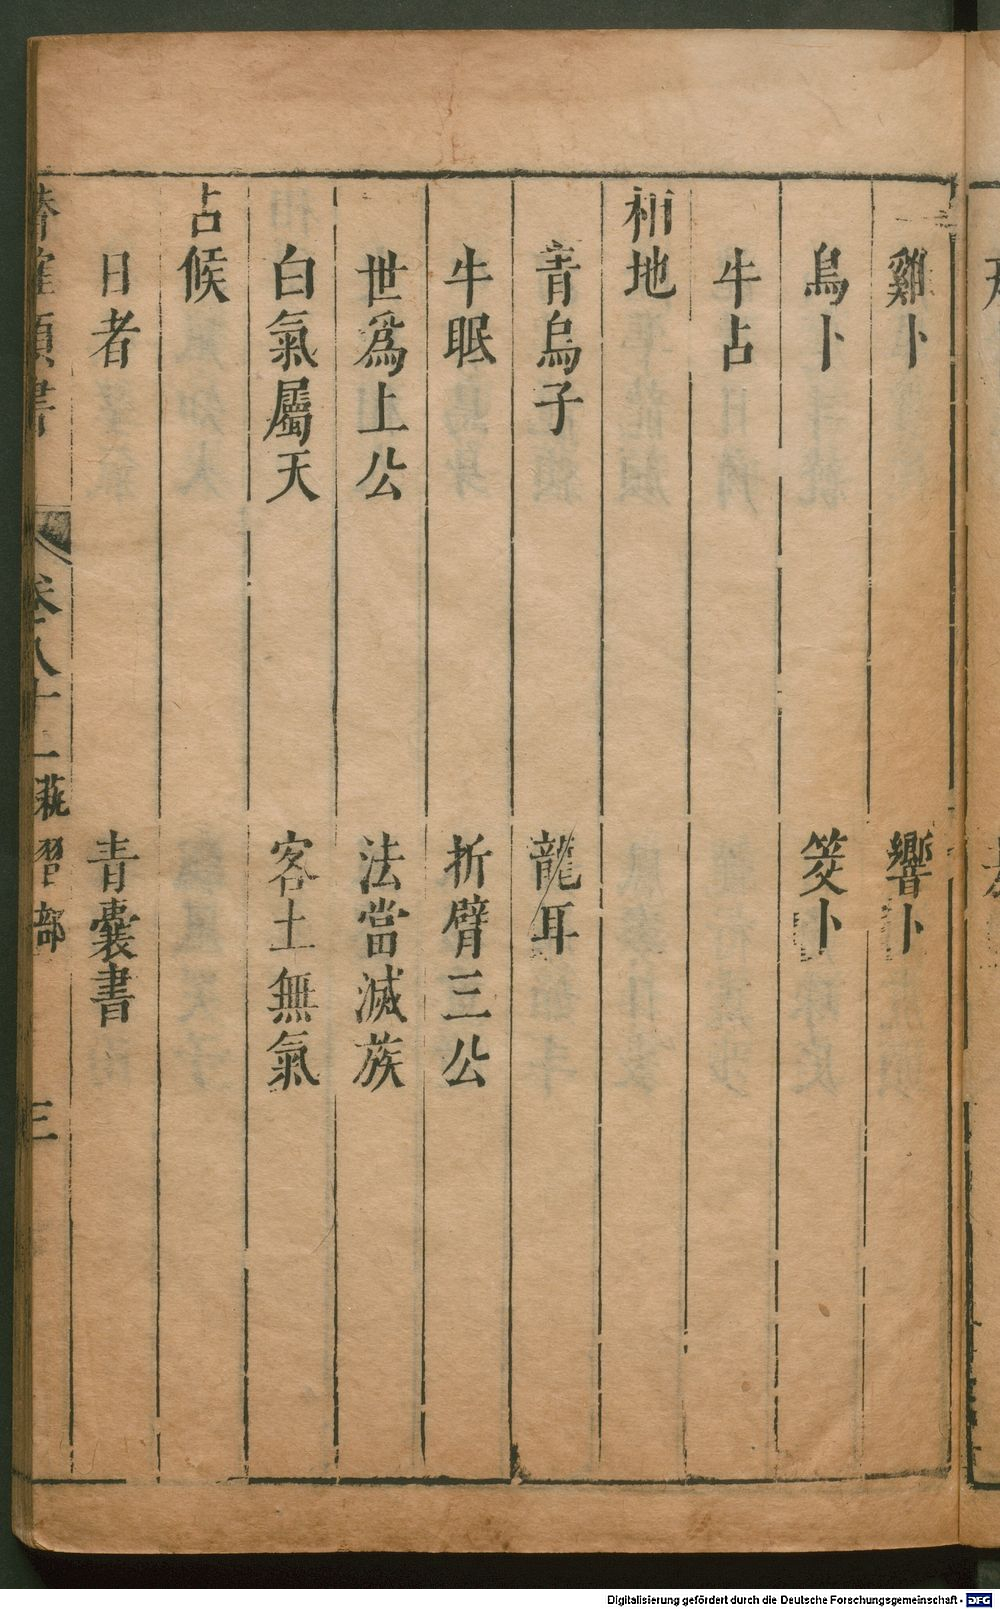 雞卜 響卜
鳥卜 筊卜
牛占
相地
青烏子 龍耳
牛眠 折臂三公
世爲上公 法當滅族
白氣屬天 客土無氣
占候
日者 青囊書
卷八十二 藝習部 三
Digitalisierung gefördert durch die Deutsche Forschungsgemeinschaft - DFG